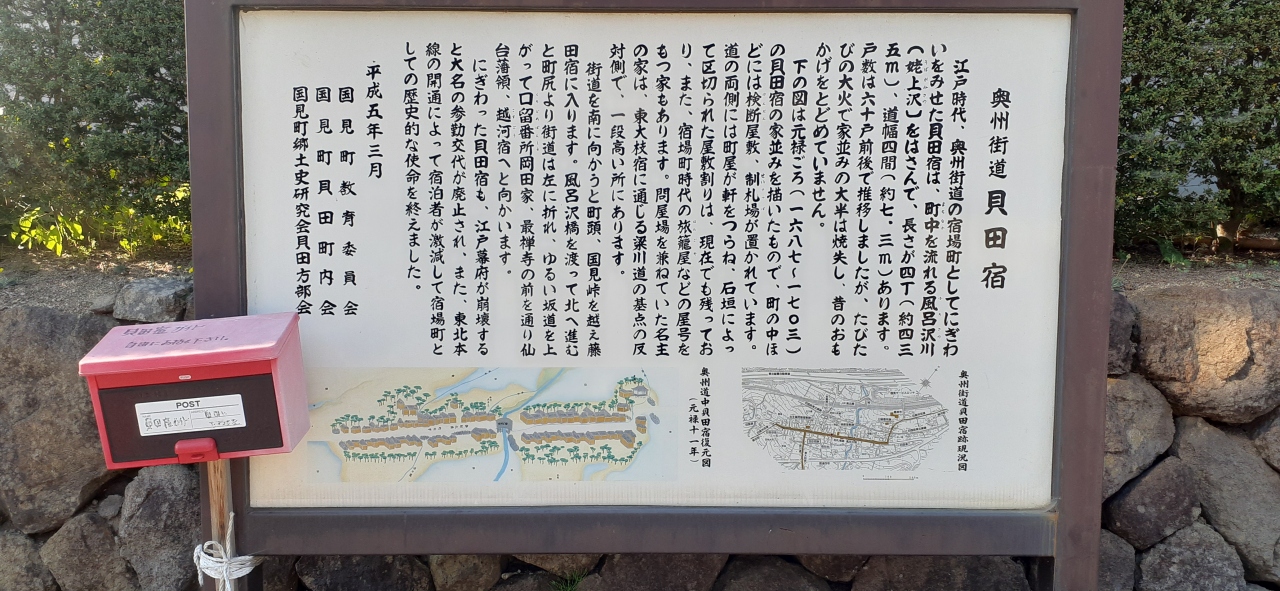 奥州街道 貝田宿
江戸時代、奥州街道の宿場町としてにぎわ
いをみせた貝田宿は、町中を流れる風呂沢川
(姥上沢)をはさんで、長さが四丁(約四三
五m)、道幅四間(約七、三m)あります。
戸数は六十戸前後で推移しましたが、たびた
びの大火で家並みの大半は焼失し、昔のおも
かげをとどめていません。
下の図は元禄ごろ(一六八七~一七〇三)
の貝田宿の家並みを描いたもので、町の中ほ
どには検断屋敷、制札場が置かれています。
道の両側には町屋が軒をつらね、石垣によっ
て区切られた屋敷割りは、現在でも残ってお
り、また、宿場町時代の旅籠屋などの屋号を
もつ家もあります。問屋場を兼ねていた名主
の家は、東大枝宿に通じる梁川道の基点の反
対側で、一段高い所にあります。
街道を南に向かうと町頭、国見峠を越え藤
田宿に入ります。風呂沢橋を渡って北へ進む
と町尻より街道は左に折れ、ゆるい坂道を上
がって口留番所岡田家、最禅寺の前を通り仙
台藩領、越河宿へと向かいます。
にぎわった貝田宿も、江戸幕府が崩壊する
と大名の参勤交代が廃止され、また、東北本
線の開通によって宿泊者が激減して宿場町と
しての歴史的な使命を終えました。
平成五年三月
国見町教育委員会
国見町貝田町内会
国見町郷土史研究会貝田方部会
奥州街道貝田宿跡現況図
奥州道中貝田宿復元図
(元禄十一年)
POST